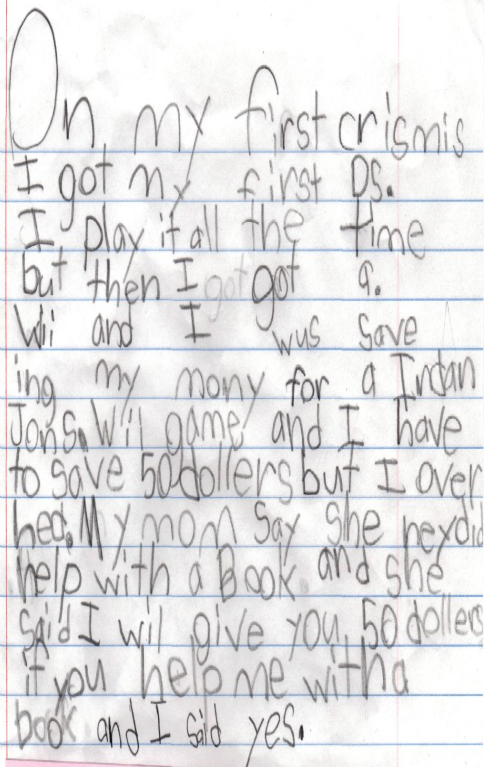 On my first crismis
I got my first DS.
I play it all the time
but then I got got a.
Wii and I wus save
ing my mony for a Indan
Jons. Wii game and I have
to save 50 dollers but I over
hed. My mom say she neydid
help with a Book and she
said I wil give you 50 dollers
if you help me with a
book and I said yes.